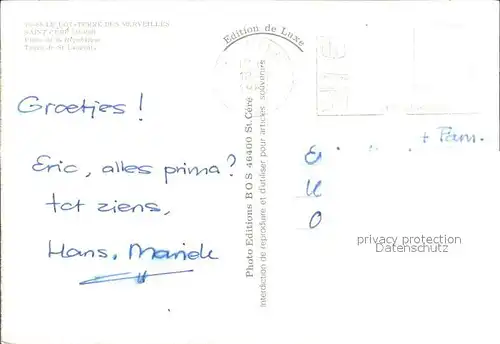 LE LOT - TERRE DES MERVEILLES
SAINT CÉRÉ
Place de la République
Tours de St Laurent
Edition de Luxe
Groetjes!
Eric, alles prima?
tot ziens,
Hans, Mariek
Photo Editions BOS 46400 St. Céré
Interdiction de reproduire et d'utiliser pour articles souvenirs
+ Fam.
privacy protection
Datenschutz